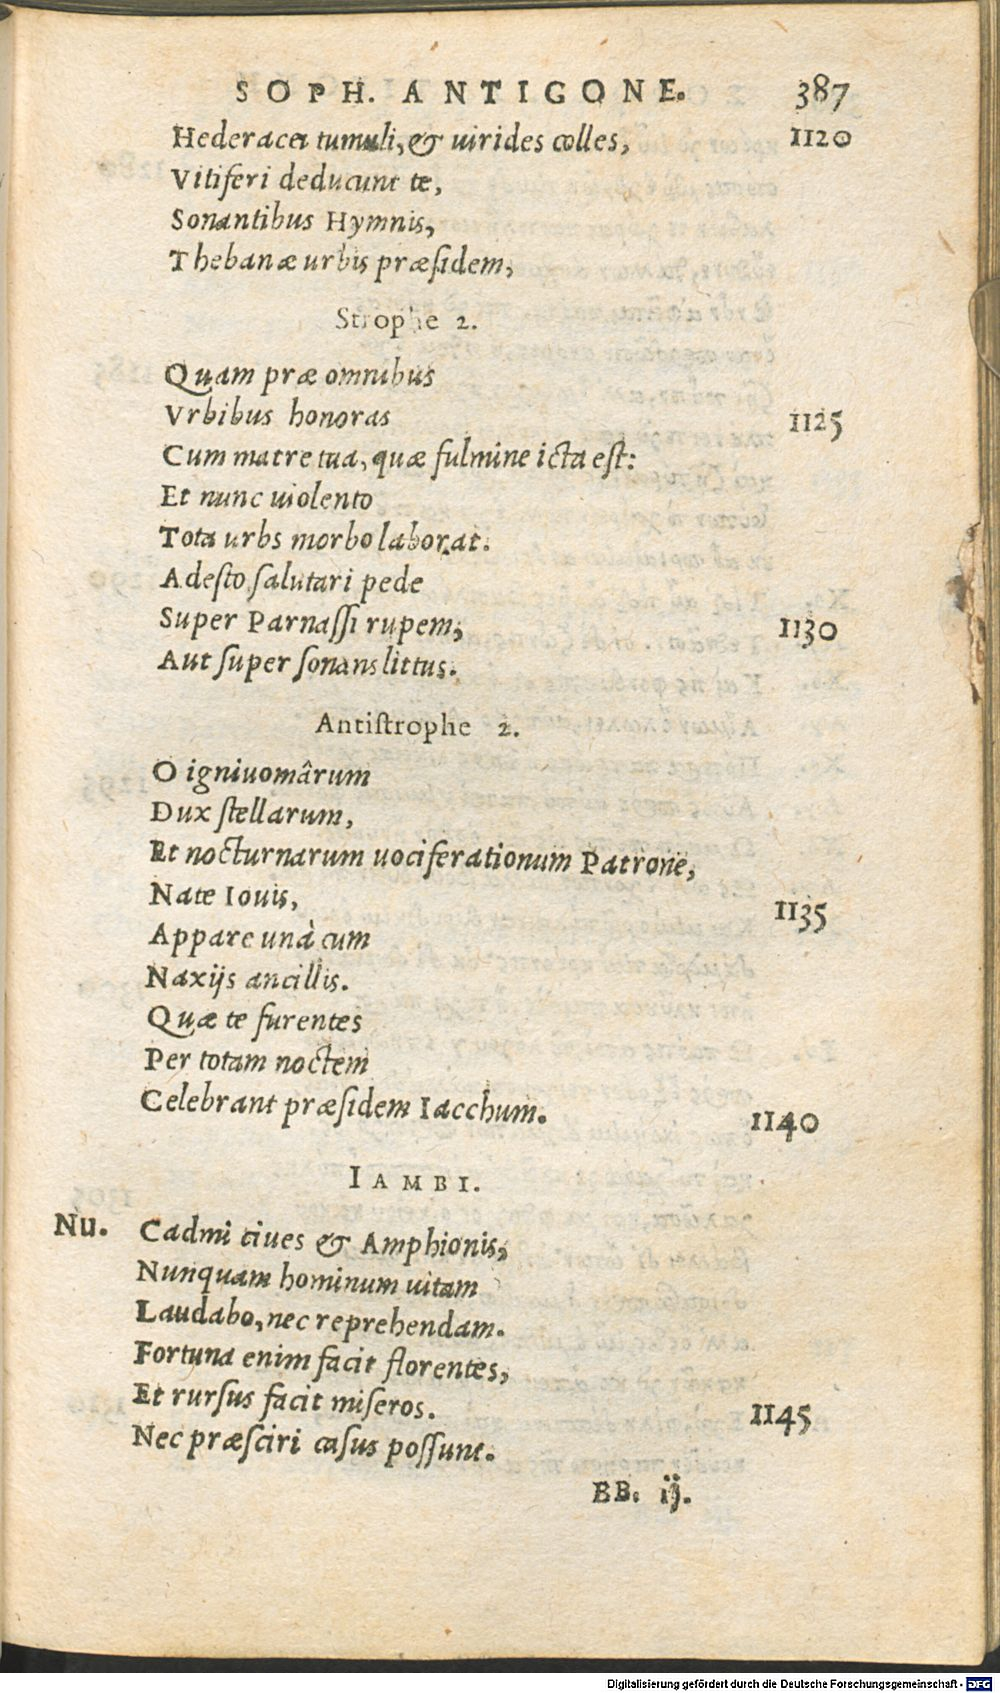 SOPH. ANTIGONE. 387
Hederacei tumuli, & uirides colles, 1120
Vitiferi deducunt te,
Sonantibus Hymnis,
Thebanæ urbis præsidem,
Strophe 2.
Quam præ omnibus
Vrbibus honoras 1125
Cum matre tua, quæ fulmine icta est:
Et nunc uiolento
Tota urbs morbo laborat.
Adesto salutari pede
Super Parnassi rupem, 1130
Aut super sonans littus.
Antistrophe 2.
O igniuomârum
Dux stellarum,
Et nocturnarum uociferationum Patrone,
Nate Iouis, 1135
Appare unà cum
Naxijs ancillis.
Quæ te furentes
Per totam noctem
Celebrant præsidem Iacchum. 1140
IAMBI.
Nu. Cadmi ciues & Amphionis,
Nunquam hominum uitam
Laudabo, nec reprehendam.
Fortuna enim facit florentes,
Et rursus facit miseros. 1145
Nec præsciri casus possunt.
BB. ij.
Digitalisierung gefördert durch die Deutsche Forschungsgemeinschaft - DFG